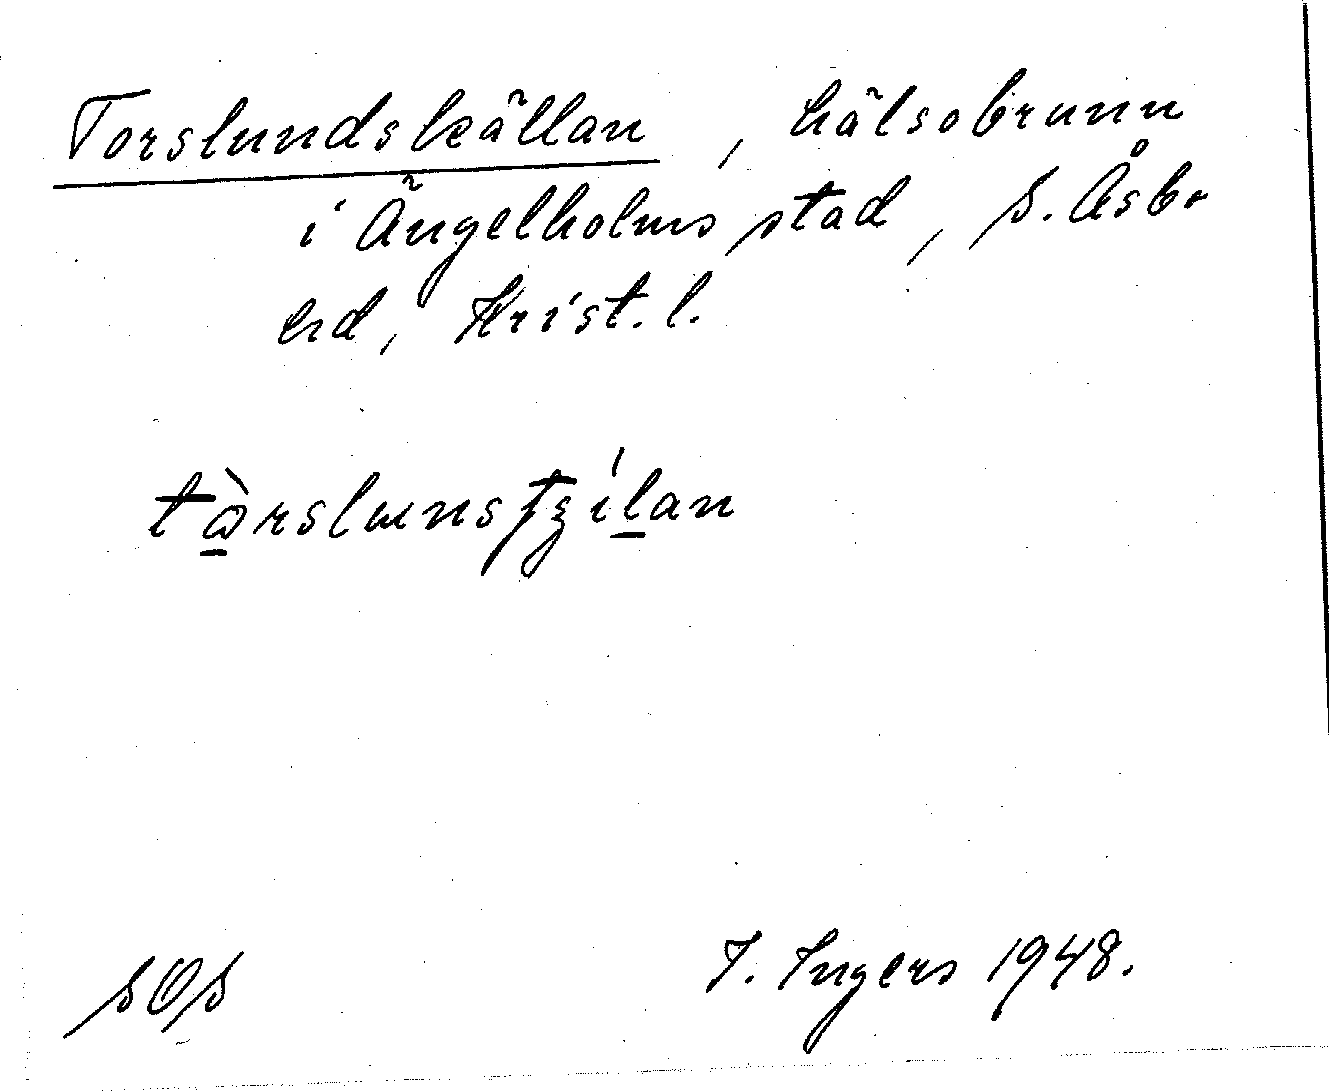 Torslundskällan, hälsobrunn
i Ängelholms stad, S. Åsbo
hd, Krist. l.
SOS
I. Ingers 1948.